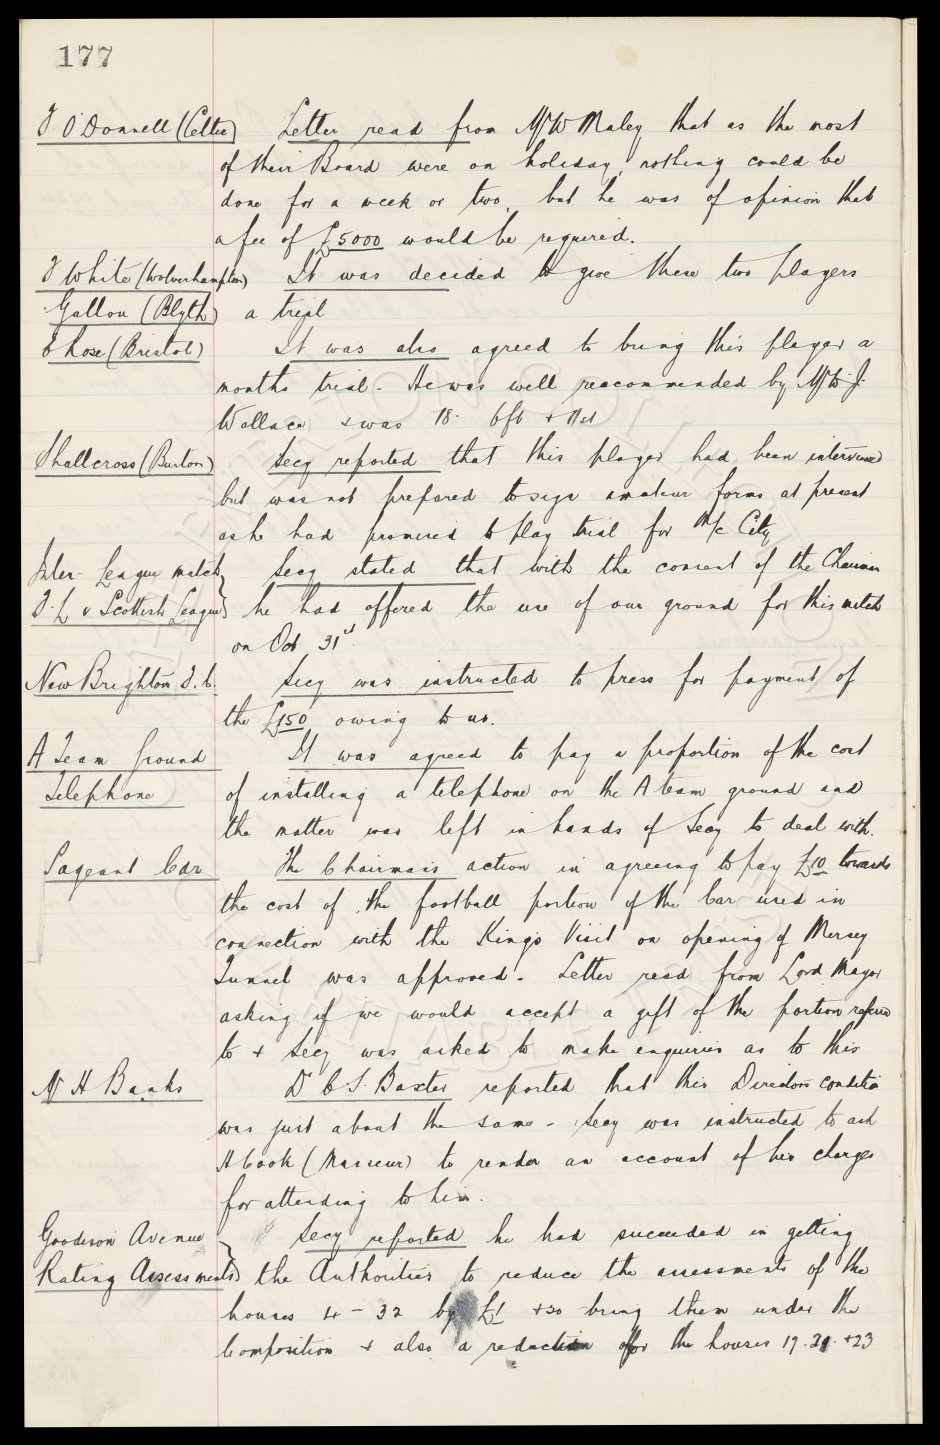 177
F O'Donnell (Celtic) Letter read from Mr W Maley that as the most
of their Board were on holiday, nothing could be
done for a week or two, but he was of opinion that
a fee of £5000 would be required.
F White (Wolverhampton) It was decided to give these two players
Gallon (Blyth) a trial
E Rose (Bristol) It was also agreed to bring this player a
months trial. He was well reacommended by Mr W. J.
Wallace & was 18. 6ft & 11st
Shallcross (Burton) Secy reported that this player had been interviewed
but was not prepared to sign amateur forms at present
as he had promised to play trial for M/c City
Inter League match } Secy stated that with the consent of the Chairman
F. L v Scottish League } he had offered the use of our ground for this match
on Oct 31st.
New Brighton F. C. Secy was instructed to press for payment of
the £150 owing to us.
A Team Ground It was agreed to pay a proportion of the cost
Telephone of installing a telephone on the A team ground and
the matter was left in hands of Secy to deal with.
Pageant Car The Chairmans action in agreeing to pay £10 towards
the cost of the football portion of the Car used in
connection with the King's Visit on opening of Mersey
Tunnel was approved. Letter read from Lord Mayor
asking if we would accept a gift of the portion referred
to & Secy was asked to make enquiries as to this
Mr H Banks Dr C. S. Baxter reported that this Directors condition
was just about the same - Secy was instructed to ask
H Cook (Masseur) to render an account of his charges
for attending to him.
Goodison Avenue } Secy reported he had succeeded in getting
Rating Assessments } the Authorities to reduce the assessments of the
houses 4 - 32 by £1 & so bring them under the
Composition & also a reduction for the houses 19. 21. & 23